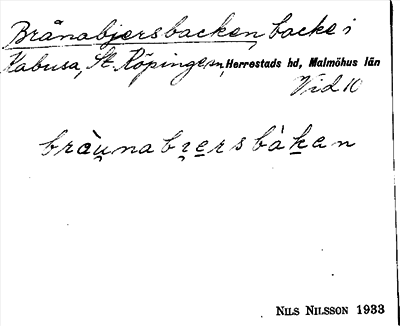 Brånabjersbacken, backe i
Kabusa, St. Köpinge sn, Herrestads hd, Malmöhus län
Vid 10
bràu̯nabi̯ersbàken
NILS NILSSON 1933